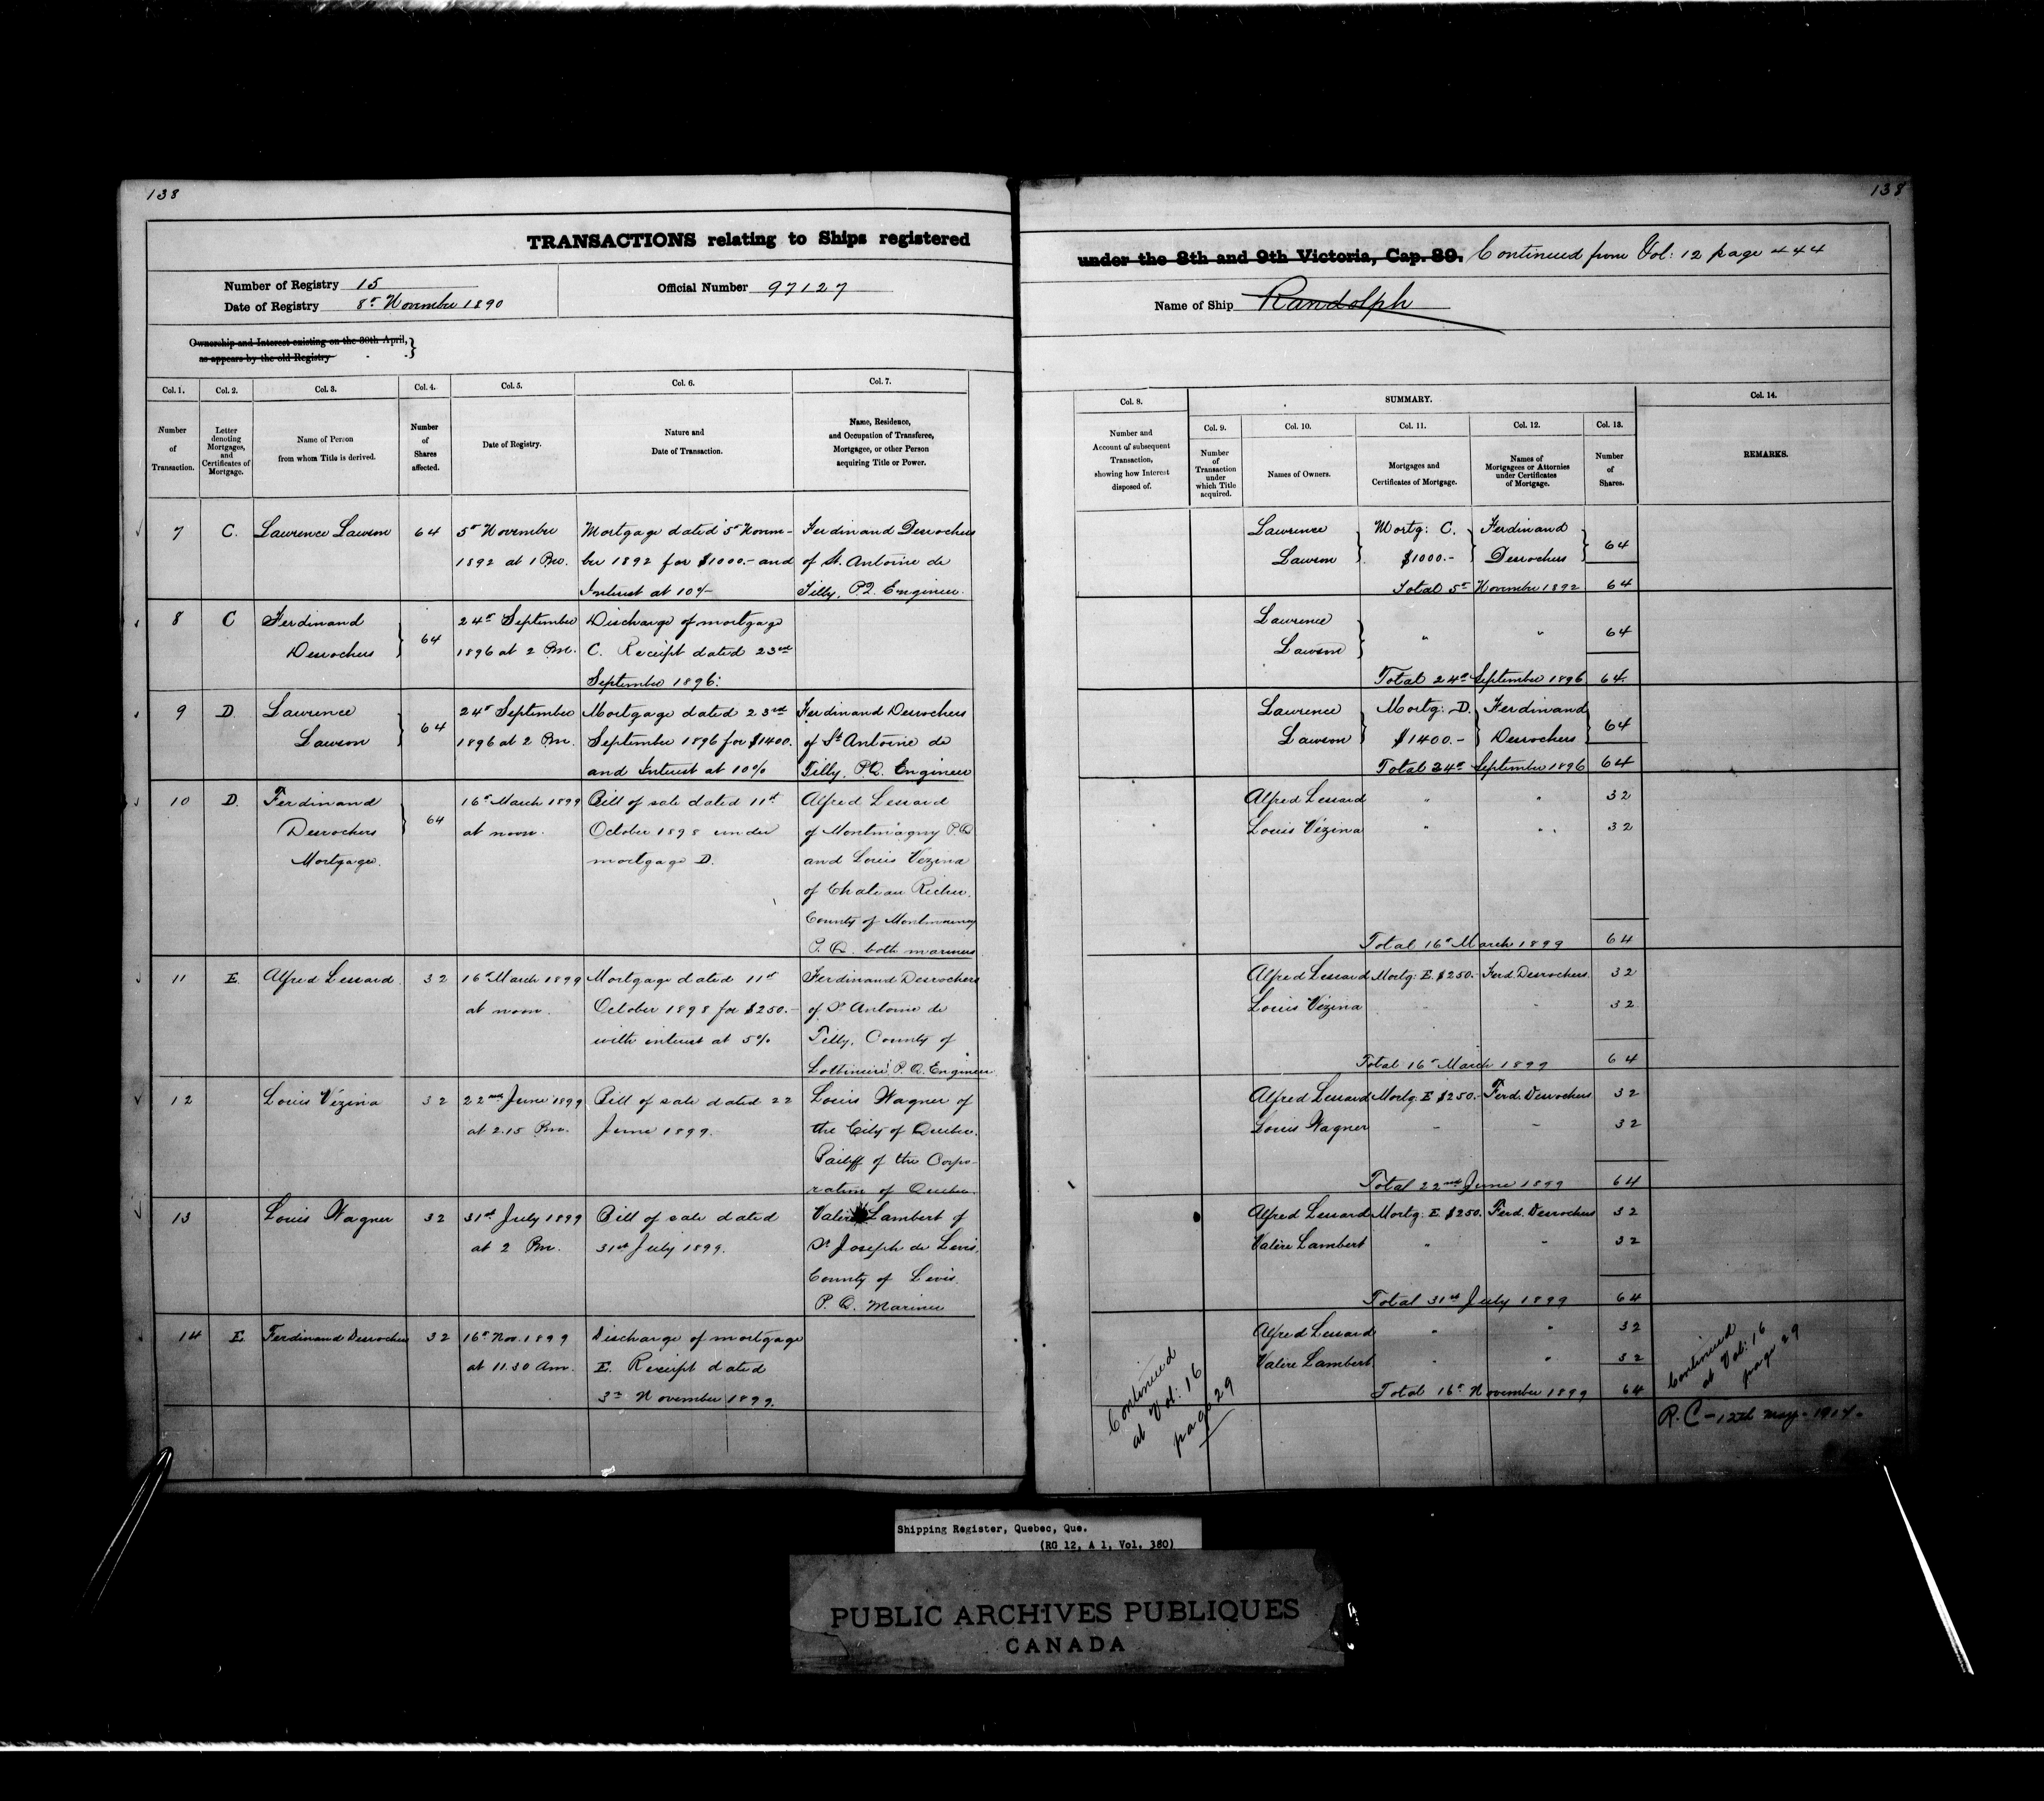 138
TRANSACTIONS relating to Ships registered
Number of Registry 15
Date of Registry 8th November 1890
Official Number 97127
Ownership and Interest existing on the 30th April,
as appears by the old Registry
Col. 1. Col. 2. Col. 3. Col. 4. Col. 5. Col. 6. Col. 7.
Number of Transaction.
Letter denoting Mortgages, and Certificates of Mortgage.
Name of Person from whom Title is derived.
Number of Shares affected.
Date of Registry.
Nature and Date of Transaction.
Name, Residence, and Occupation of Transferee, Mortgagee, or other Person acquiring Title or Power.
7 C. Lawrence Lawson 64 5th November Mortgage dated 5th Novem- Ferdinand Desrochers
1892 at 1 Pm. ber 1892 for $1000.- and of St. Antoine de
Interest at 10% Tilly, P.Q. Engineer.
8 C Ferdinand 24th September Discharge of mortgage
Desrochers 64 1896 at 2 Pm. C. Receipt dated 23rd
September 1896.
9 D. Lawrence 24th September Mortgage dated 23rd Ferdinand Desrochers
Lawson 64 1896 at 2 Pm. September 1896 for $1400. of St Antoine de
and Interest at 10% Tilly, P.Q. Engineer
10 D. Ferdinand 16th March 1899 Bill of sale dated 11th Alfred Lessard
Desrochers 64 at noon. October 1898 under of Montmagny P.Q
Mortgagee. mortgage D. and Louis Vezina
of Chateau Richer.
County of Montmorency
P.Q. both mariners
11 E. Alfred Lessard. 32 16th March 1899 Mortgage dated 11th Ferdinand Desrochers
at noon. October 1898 for $250.- of St Antoine de
with interest at 5% Tilly, County of
Lotbiniere P.Q. Engineer
12 Louis Vézina 32 22nd June 1899 Bill of sale dated 22 Louis Wagner of
at 2.15 Pm. June 1899. the City of Quebec.
Bailiff of the Corpo-
ration of Quebec.
13 Louis Wagner 32 31st July 1899 Bill of sale dated Valère Lambert of
at 2 Pm. 31st July 1899. St Joseph de Levis,
County of Levis.
P.Q. Mariner
14 E. Ferdinand Desrochers 32 16th Nov. 1899 Discharge of mortgage
at 11.30 Am. E. Receipt dated
3rd November 1899.
138
under the 8th and 9th Victoria, Cap. 89. Continued from Vol: 12 page 444
Name of Ship Randolph
Col. 8. SUMMARY. Col. 14.
Col. 9. Col. 10. Col. 11. Col. 12. Col. 13.
Number and Account of subsequent Transaction, showing how Interest disposed of.
Number of Transaction under which Title acquired.
Names of Owners.
Mortgages and Certificates of Mortgage.
Names of Mortgagees or Attornies under Certificates of Mortgage.
Number of Shares.
REMARKS.
Lawrence Mortg: C. Ferdinand
Lawson $1000.- Desrochers 64
Total 5th November 1892 64
Lawrence
Lawson " " 64
Total 24th September 1896 64.
Lawrence Mortg: D. Ferdinand
Lawson $1400.- Desrochers 64
Total 24th September 1896 64
Alfred Lessard " " 32
Louis Vézina " " 32
Total 16th March 1899 64
Alfred Lessard Mortg: E. $250.- Ferd. Desrochers. 32
Louis Vézina 32
Total 16th March 1899 64
Alfred Lessard Mortg: E $250.- Ferd. Desrochers 32
Louis Wagner " " 32
Total 22nd June 1899 64
Alfred Lessard Mortg: E. $250. Ferd. Desrochers 32
Valère Lambert " " 32
Total 31st July 1899 64
Alfred Lessard " " 32
Valère Lambert " " 32
Total 16th November 1899 64
Continued
at Vol: 16
page 29
Continued
at Vol: 16
page 29
R.C - 12th may - 1914.
Shipping Register, Quebec, Que.
(RG 12, A 1, Vol. 380)
PUBLIC ARCHIVES PUBLIQUES
CANADA